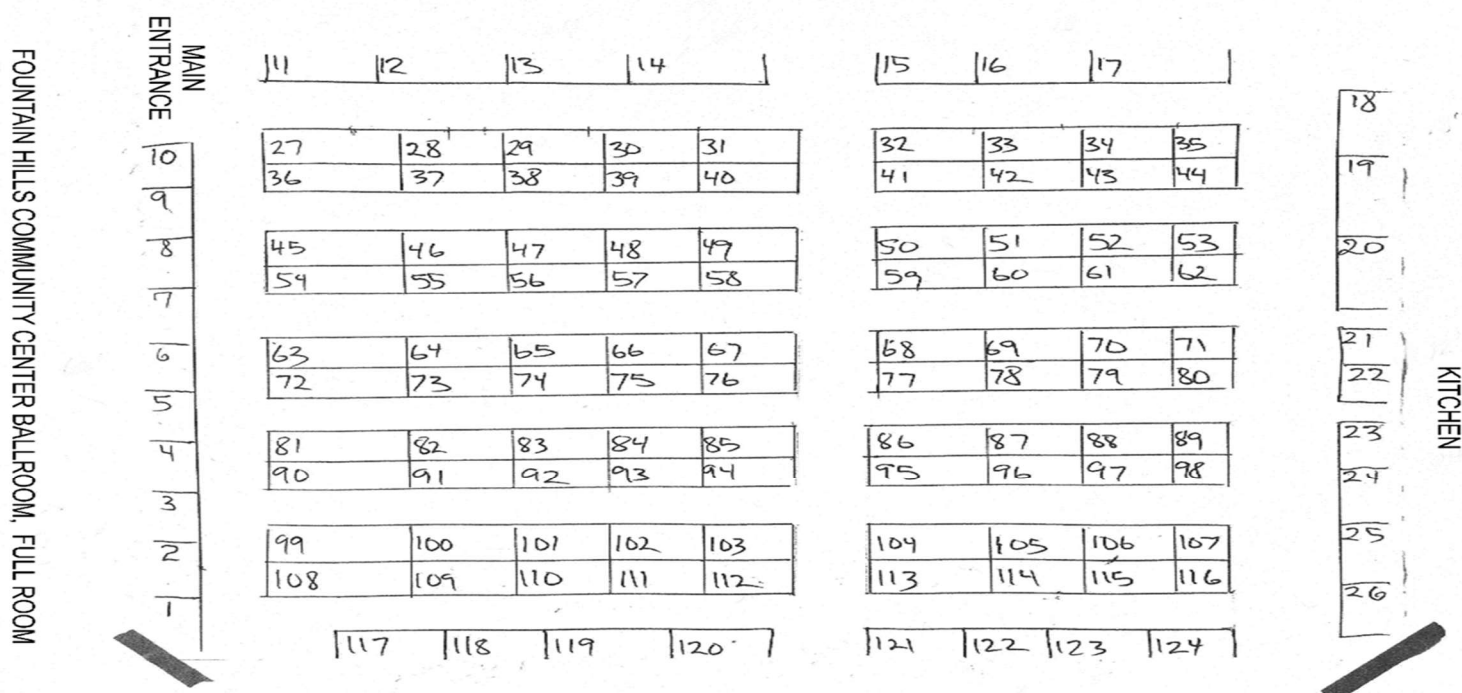 FOUNTAIN HILLS COMMUNITY CENTER BALLROOM, FULL ROOM
MAIN
ENTRANCE
10
9
8
7
6
5
4
3
2
1
11 12 13 14 15 16 17
27 28 29 30 31 32 33 34 35
36 37 38 39 40 41 42 43 44
45 46 47 48 49 50 51 52 53
54 55 56 57 58 59 60 61 62
63 64 65 66 67 68 69 70 71
72 73 74 75 76 77 78 79 80
81 82 83 84 85 86 87 88 89
90 91 92 93 94 95 96 97 98
99 100 101 102 103 104 105 106 107
108 109 110 111 112 113 114 115 116
117 118 119 120 121 122 123 124
18
19
20
21
22
23
24
25
26
KITCHEN